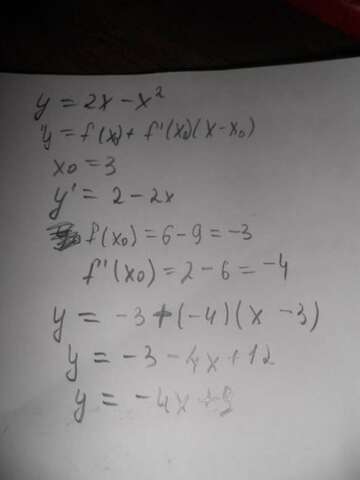 y = 2x - x²
y = f(x₀) + f'(x₀)(x - x₀)
x₀ = 3
y' = 2 - 2x
f(x₀) = 6 - 9 = -3
f'(x₀) = 2 - 6 = -4
y = -3 + (-4)(x - 3)
y = -3 - 4x + 12
y = -4x + 9